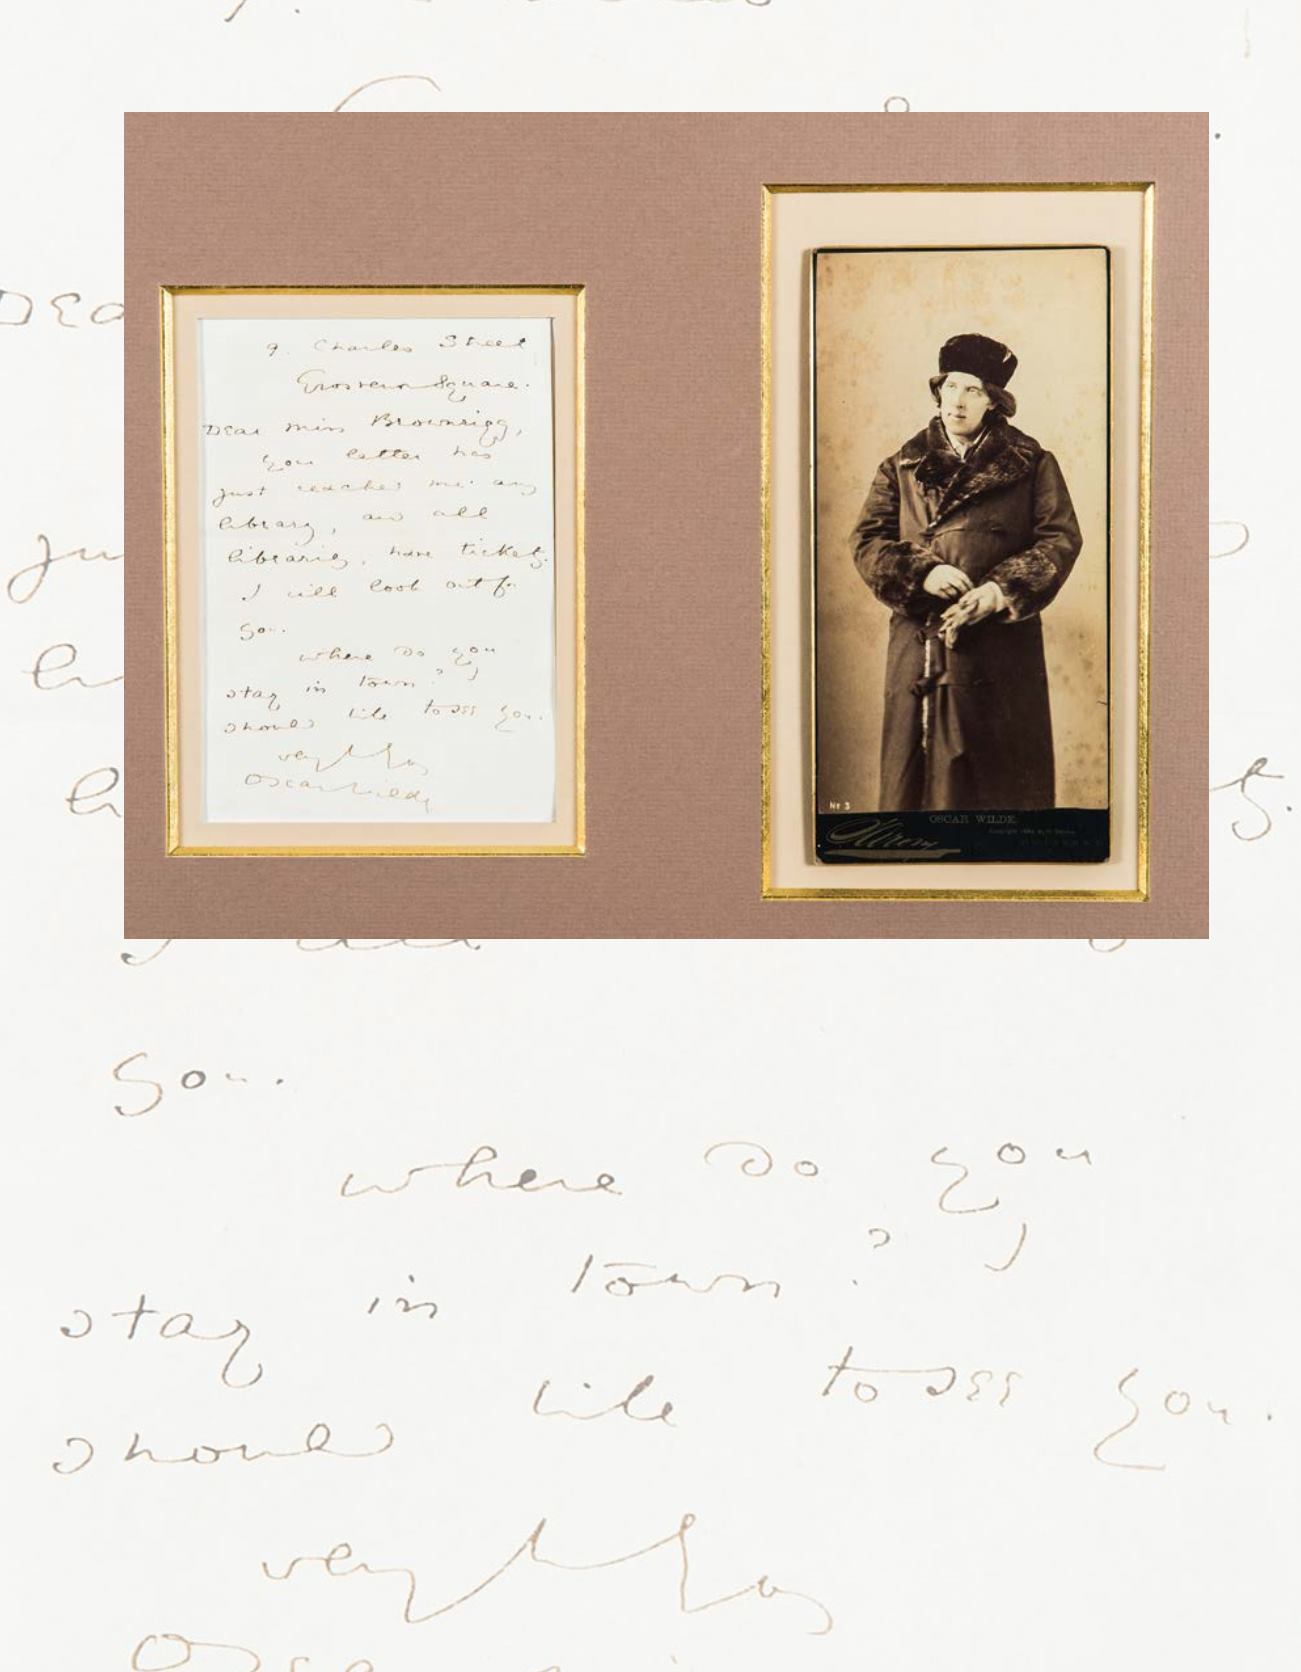 9. Charles Street
Grosvenor Square.
Dear Miss Brownrigg,
Your letter has
just reached me. any
library, and all
libraries, have tickets.
I will look out for
you.
where do you
stay in town?
should like to see you.
very truly yours
Oscar Wilde
No 3
OSCAR WILDE.
Sarony
Dea
ju
li
li
you.
where do you
stay in town?
should like to see you.
very truly yours